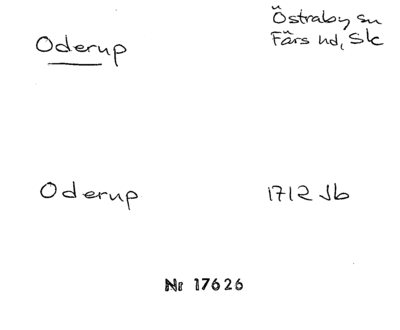 Oderup
Östraby sn
Färs hd, Sk
Oderup
1712 Jb
Nr 17626